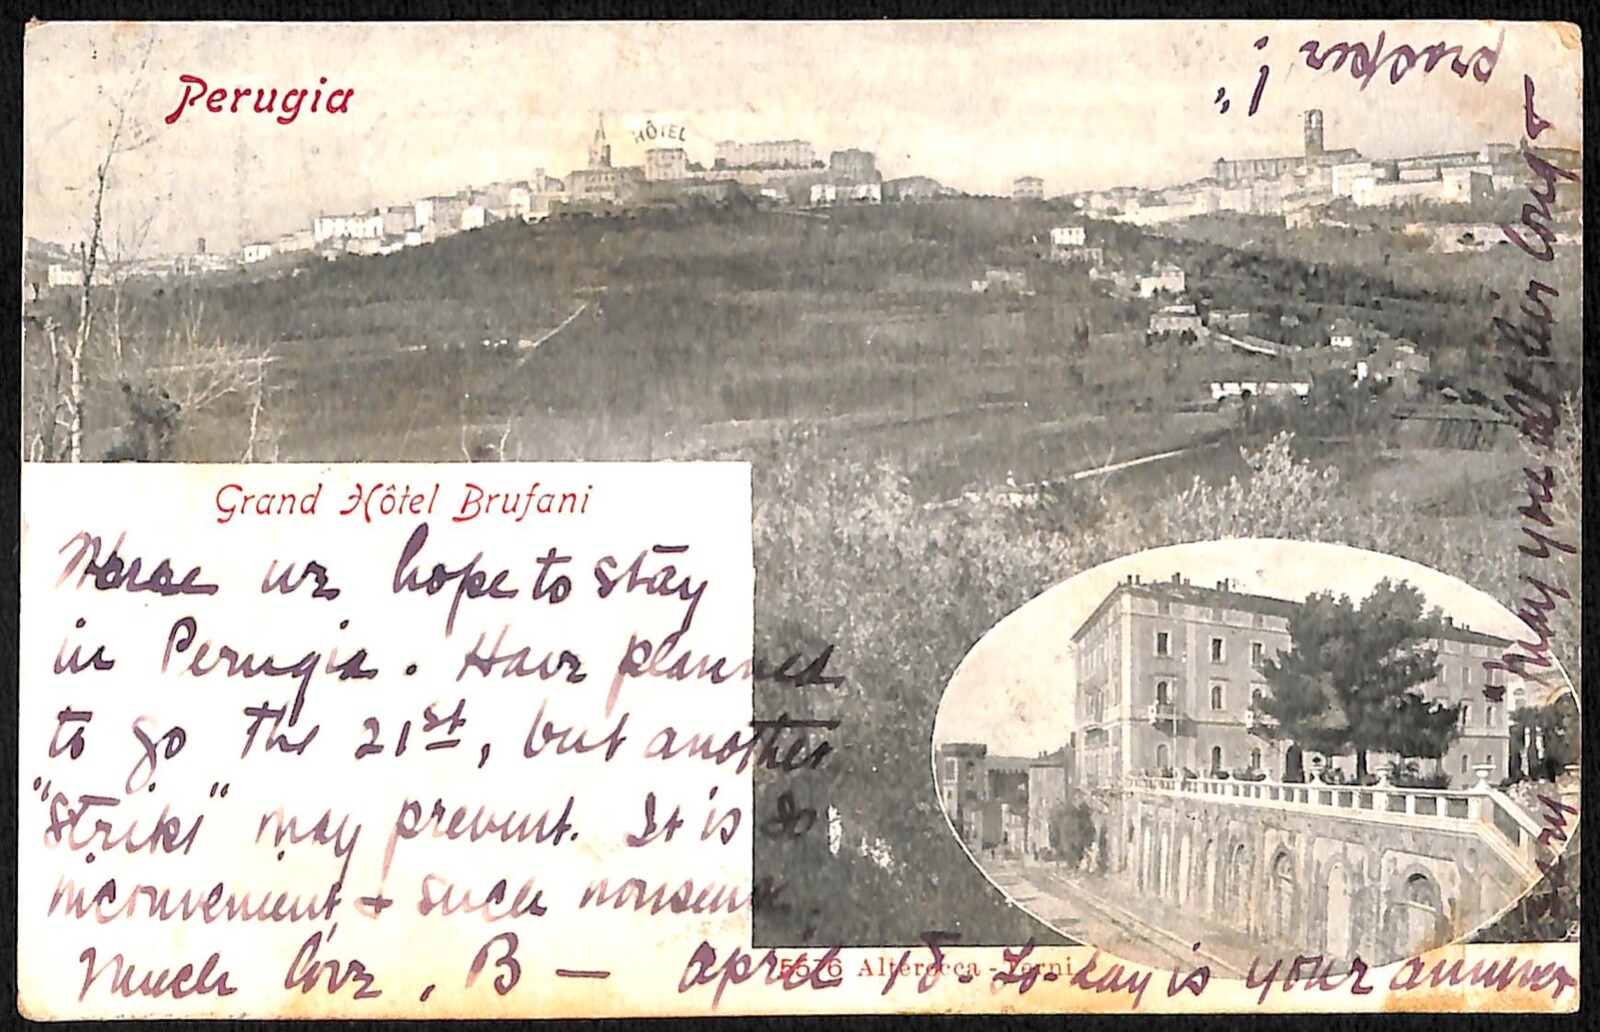 Perugia
HÔTEL
Grand Hôtel Brufani
Where we hope to stay
in Perugia. Have planned
to go the 21st, but another
"strike" may prevent. It is so
inconvenient & such nonsense.
Much love, B — April 18. To-day is your anniver
sary
"May you all live long &
prosper!"
5576 Alterocca - Terni